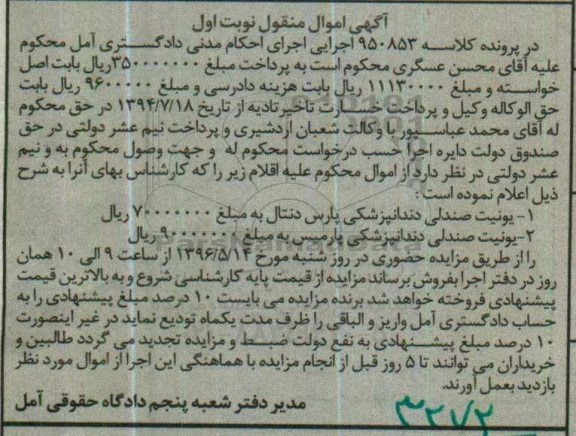 آگهی اموال منقول نوبت اول
در پرونده کلاسه ۹۵۰۸۵۳ اجرایی اجرای احکام مدنی دادگستری آمل محکوم
علیه آقای محسن عسگری محکوم است به پرداخت مبلغ ۳۵۰۰۰۰۰۰۰ ریال بابت اصل
خواسته و مبلغ ۱۱۱۳۰۰۰۰ ریال بابت هزینه دادرسی و مبلغ ۹۶۰۰۰۰۰ ریال بابت
حق الوکاله وکیل و پرداخت خسارت تاخیر تادیه از تاریخ ۱۳۹۴/۷/۱۸ در حق محکوم
له آقای محمد عباسپور با وکالت شعبان اردشیری و پرداخت نیم عشر دولتی در حق
صندوق دولت دایره اجرا حسب درخواست محکوم له و جهت وصول محکوم به و نیم
عشر دولتی در نظر دارد از اموال محکوم علیه اقلام زیر را که کارشناس بهای آنرا به شرح
ذیل اعلام نموده است:
۱- یونیت صندلی دندانپزشکی پارس دنتال به مبلغ ۷۰۰۰۰۰۰۰ ریال
۲- یونیت صندلی دندانپزشکی پارمیس به مبلغ ۹۰۰۰۰۰۰۰ ریال
را از طریق مزایده حضوری در روز شنبه مورخ ۱۳۹۶/۵/۱۴ از ساعت ۹ الی ۱۰ همان
روز در دفتر اجرا بفروش برساند مزایده از قیمت پایه کارشناسی شروع و به بالاترین قیمت
پیشنهادی فروخته خواهد شد برنده مزایده می بایست ۱۰ درصد مبلغ پیشنهادی را به
حساب دادگستری آمل واریز و الباقی را ظرف مدت یکماه تودیع نماید در غیر اینصورت
۱۰ درصد مبلغ پیشنهادی به نفع دولت ضبط و مزایده تجدید می گردد طالبین و
خریداران می توانند تا ۵ روز قبل از انجام مزایده با هماهنگی این اجرا از اموال مورد نظر
بازدید بعمل آورند.
مدیر دفتر شعبه پنجم دادگاه حقوقی آمل
۳۲۷۲